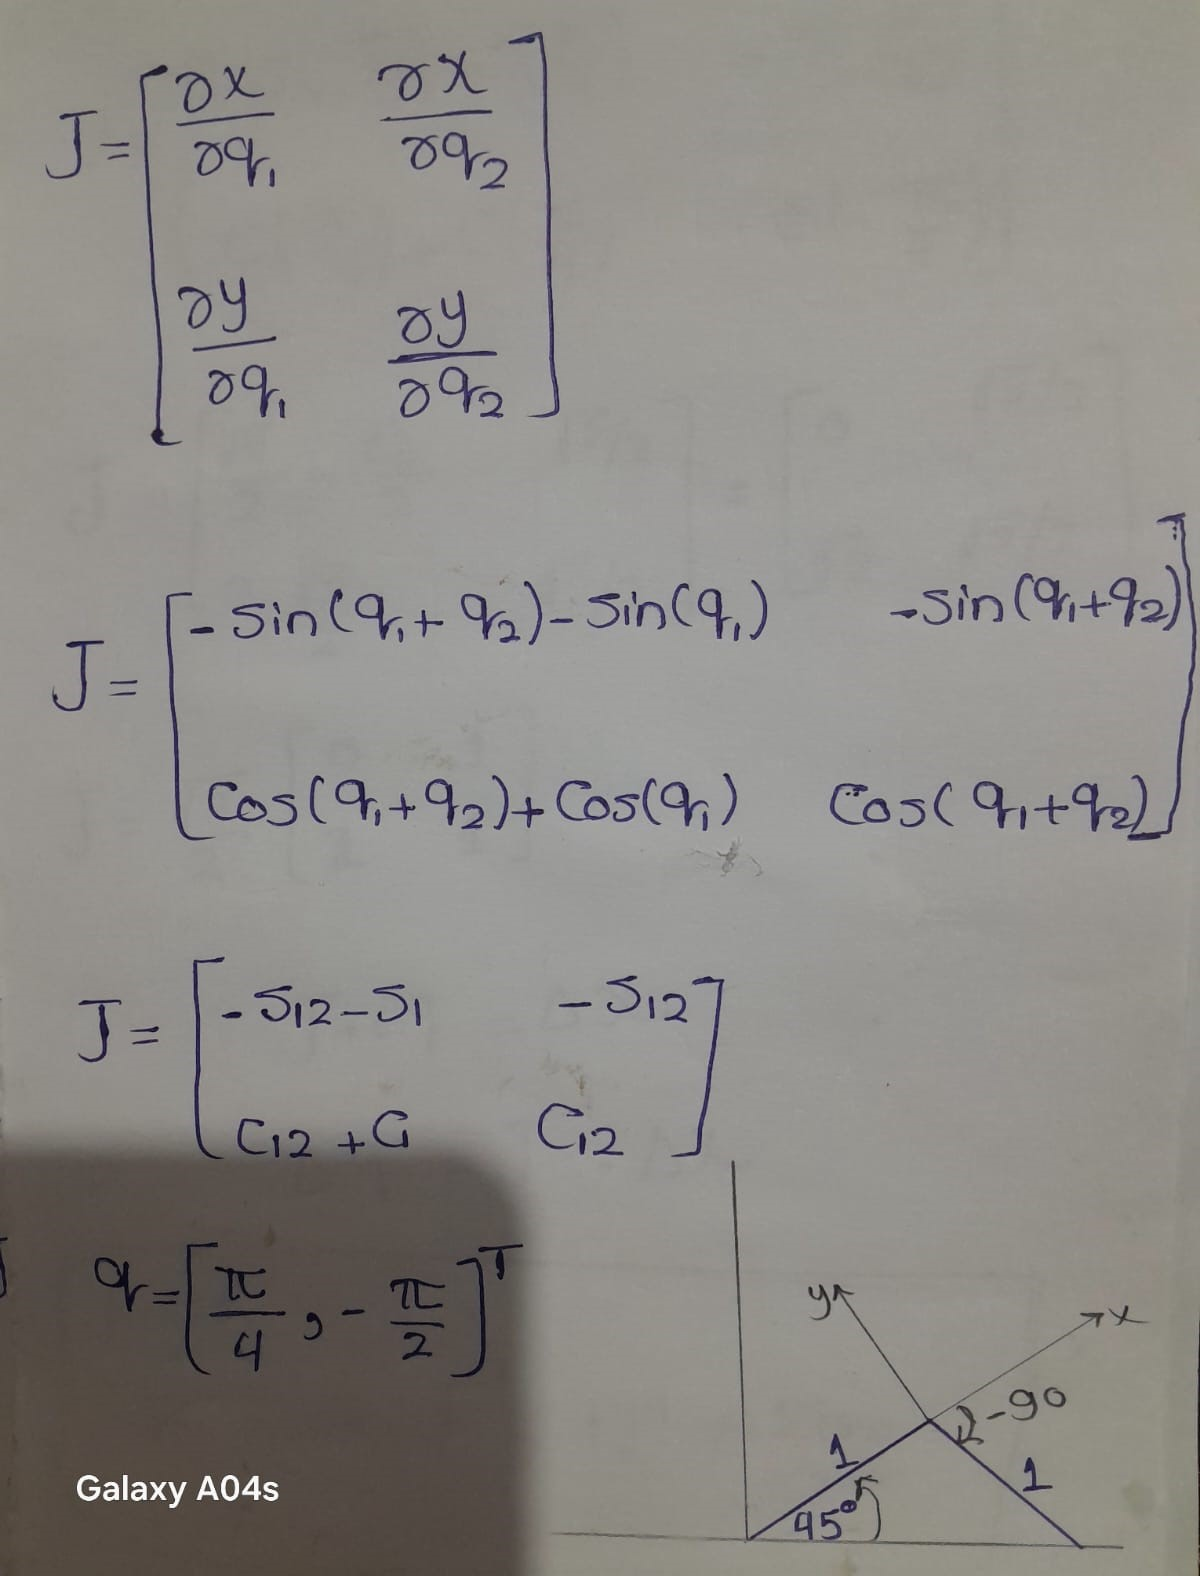 J = [ ∂x/∂q₁ ∂x/∂q₂
∂y/∂q₁ ∂y/∂q₂ ]
J = [ -sin(q₁+q₂)-sin(q₁) -sin(q₁+q₂)
Cos(q₁+q₂)+Cos(q₁) Cos(q₁+q₂) ]
J = [ -S12-S1 -S12
C12+C1 C12 ]
q = [π/4, -π/2]ᵀ
y x
-90
1 1
45°
Galaxy A04s